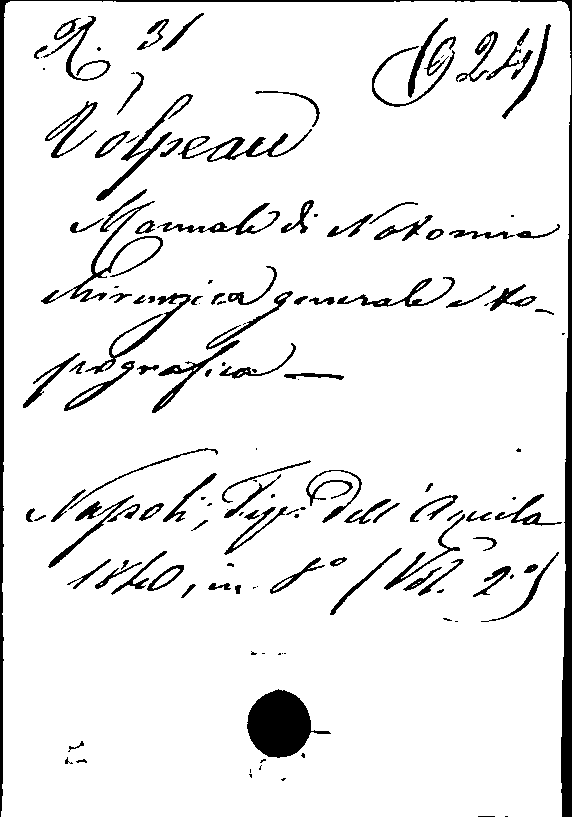 R. 31
(924)
Velpeau
Manuale di Notomia
chirurgica generale e to-
pografica —
Napoli, Tip. dell'Aquila
1840, in 8° (Vol. 2°)